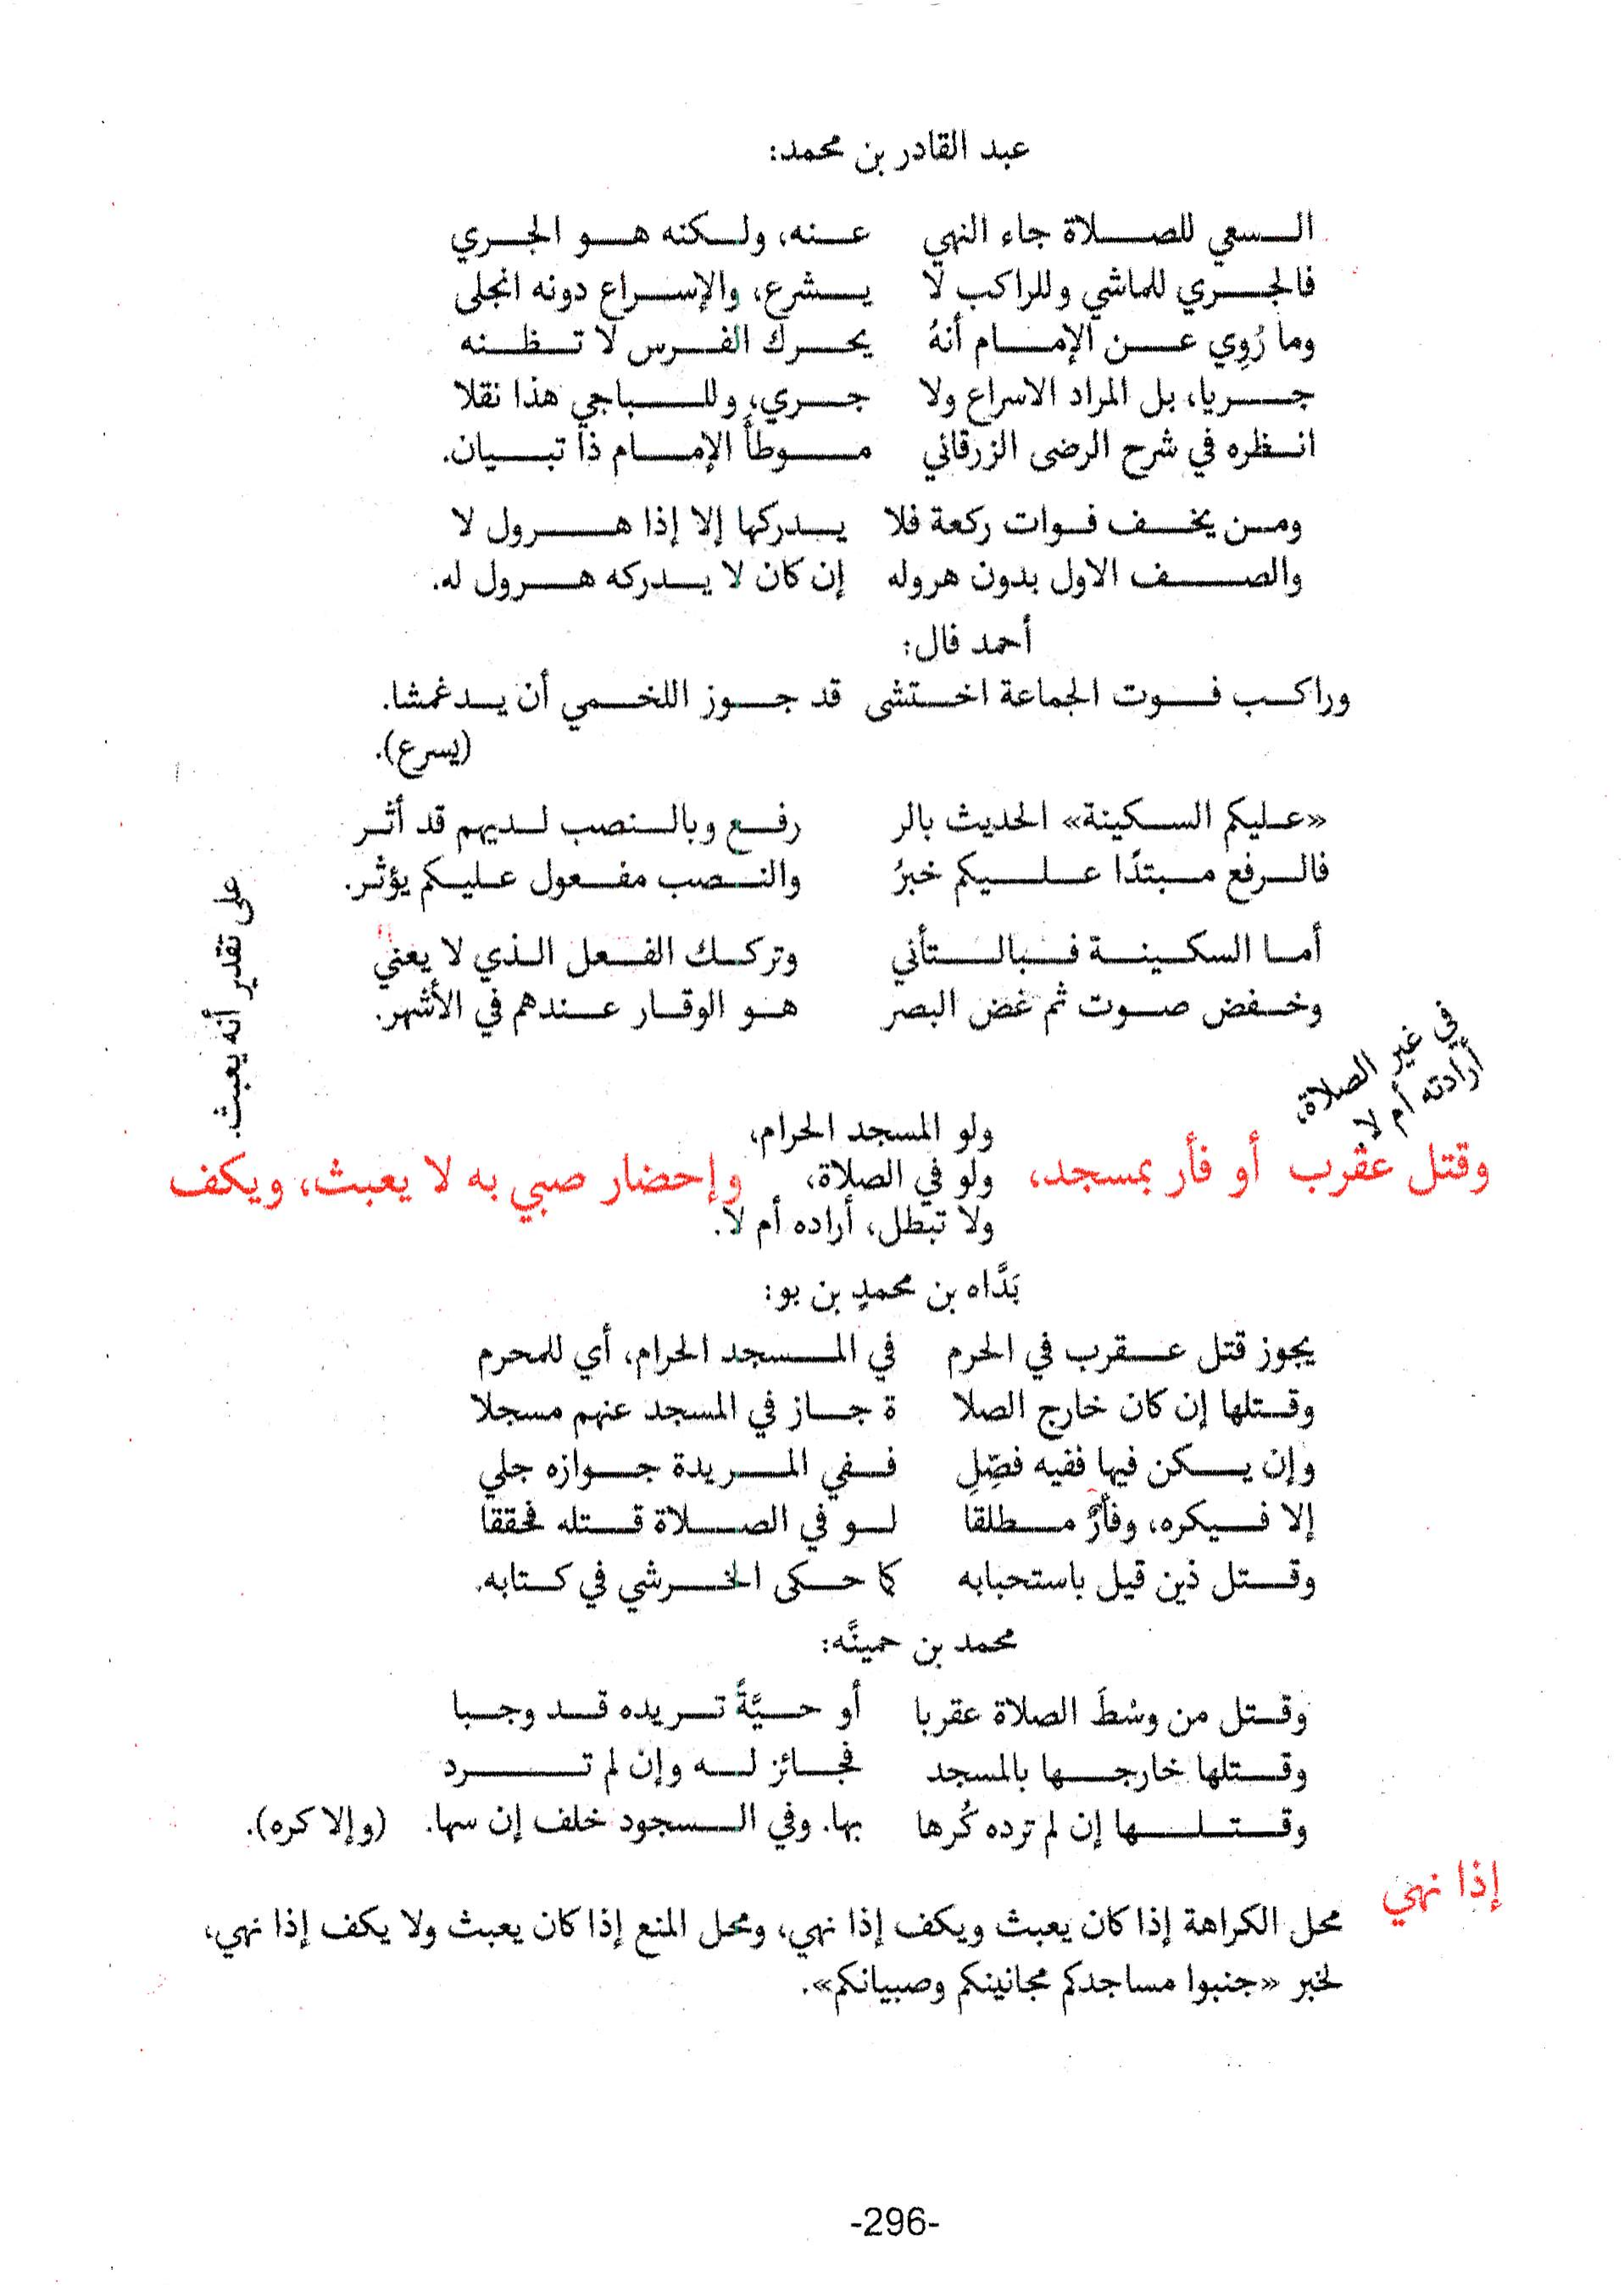 عبد القادر بن محمد:
السعي للصلاة جاء النهي عنه، ولكنه هو الجري
فالجري للماشي وللراكب لا يشرع، والإسراع دونه انجلى
وما رُوِي عن الإمام أنهُ يحرك الفرس لا تظنه
جريا، بل المراد الاسراع ولا جري، وللباجي هذا نقلا
انظره في شرح الرضى الزرقاني موطأَ الإمام ذا تبيان.
ومن يخف فوات ركعة فلا يدركها إلا إذا هرول لا
والصف الاول بدون هروله إن كان لا يدركه هرول له.
أحمد فال:
وراكب فوت الجماعة اختشى قد جوز اللخمي أن يدغمشا.
(يسرع).
«عليكم السكينة» الحديث بالر رفع وبالنصب لديهم قد أثر
فالرفع مبتدًا عليكم خبرُ والنصب مفعول عليكم يؤثر.
أما السكينة فبالتأني وتركك الفعل الذي لا يعني
وخفض صوت ثم غض البصر هو الوقار عندهم في الأشهر.
على تقدير أنه يعبث.
في غير الصلاة،
أرادته أم لا.
وقتل عقرب أو فأر بمسجد،
ولو المسجد الحرام،
ولو في الصلاة،
ولا تبطل، أراده أم لا.
وإحضار صبي به لا يعبث، ويكف
بَدَّاه بن محمدٍ بن بو:
يجوز قتل عقرب في الحرم في المسجد الحرام، أي للمحرم
وقتلها إن كان خارج الصلا ة جاز في المسجد عنهم مسجلا
وإن يكن فيها ففيه فصِّلِ ففي المريدة جوازه جلي
إلا فيكره، وفأرٌ مطلقا لو في الصلاة قتله فحققا
وقتل ذين قيل باستحبابه كما حكى الخرشي في كتابه.
محمد بن حمينَّه:
وقتل من وسْطَ الصلاة عقربا أو حيَّةً تريده قد وجبا
وقتلها خارجها بالمسجد فجائز له وإن لم ترد
وقتلها إن لم ترده كُرها بها. وفي السجود خلف إن سها. (وإلا كره).
إذا نهي
محل الكراهة إذا كان يعبث ويكف إذا نهي، ومحل المنع إذا كان يعبث ولا يكف إذا نهي،
لخبر «جنبوا مساجدكم مجانينكم وصبيانكم».
-296-